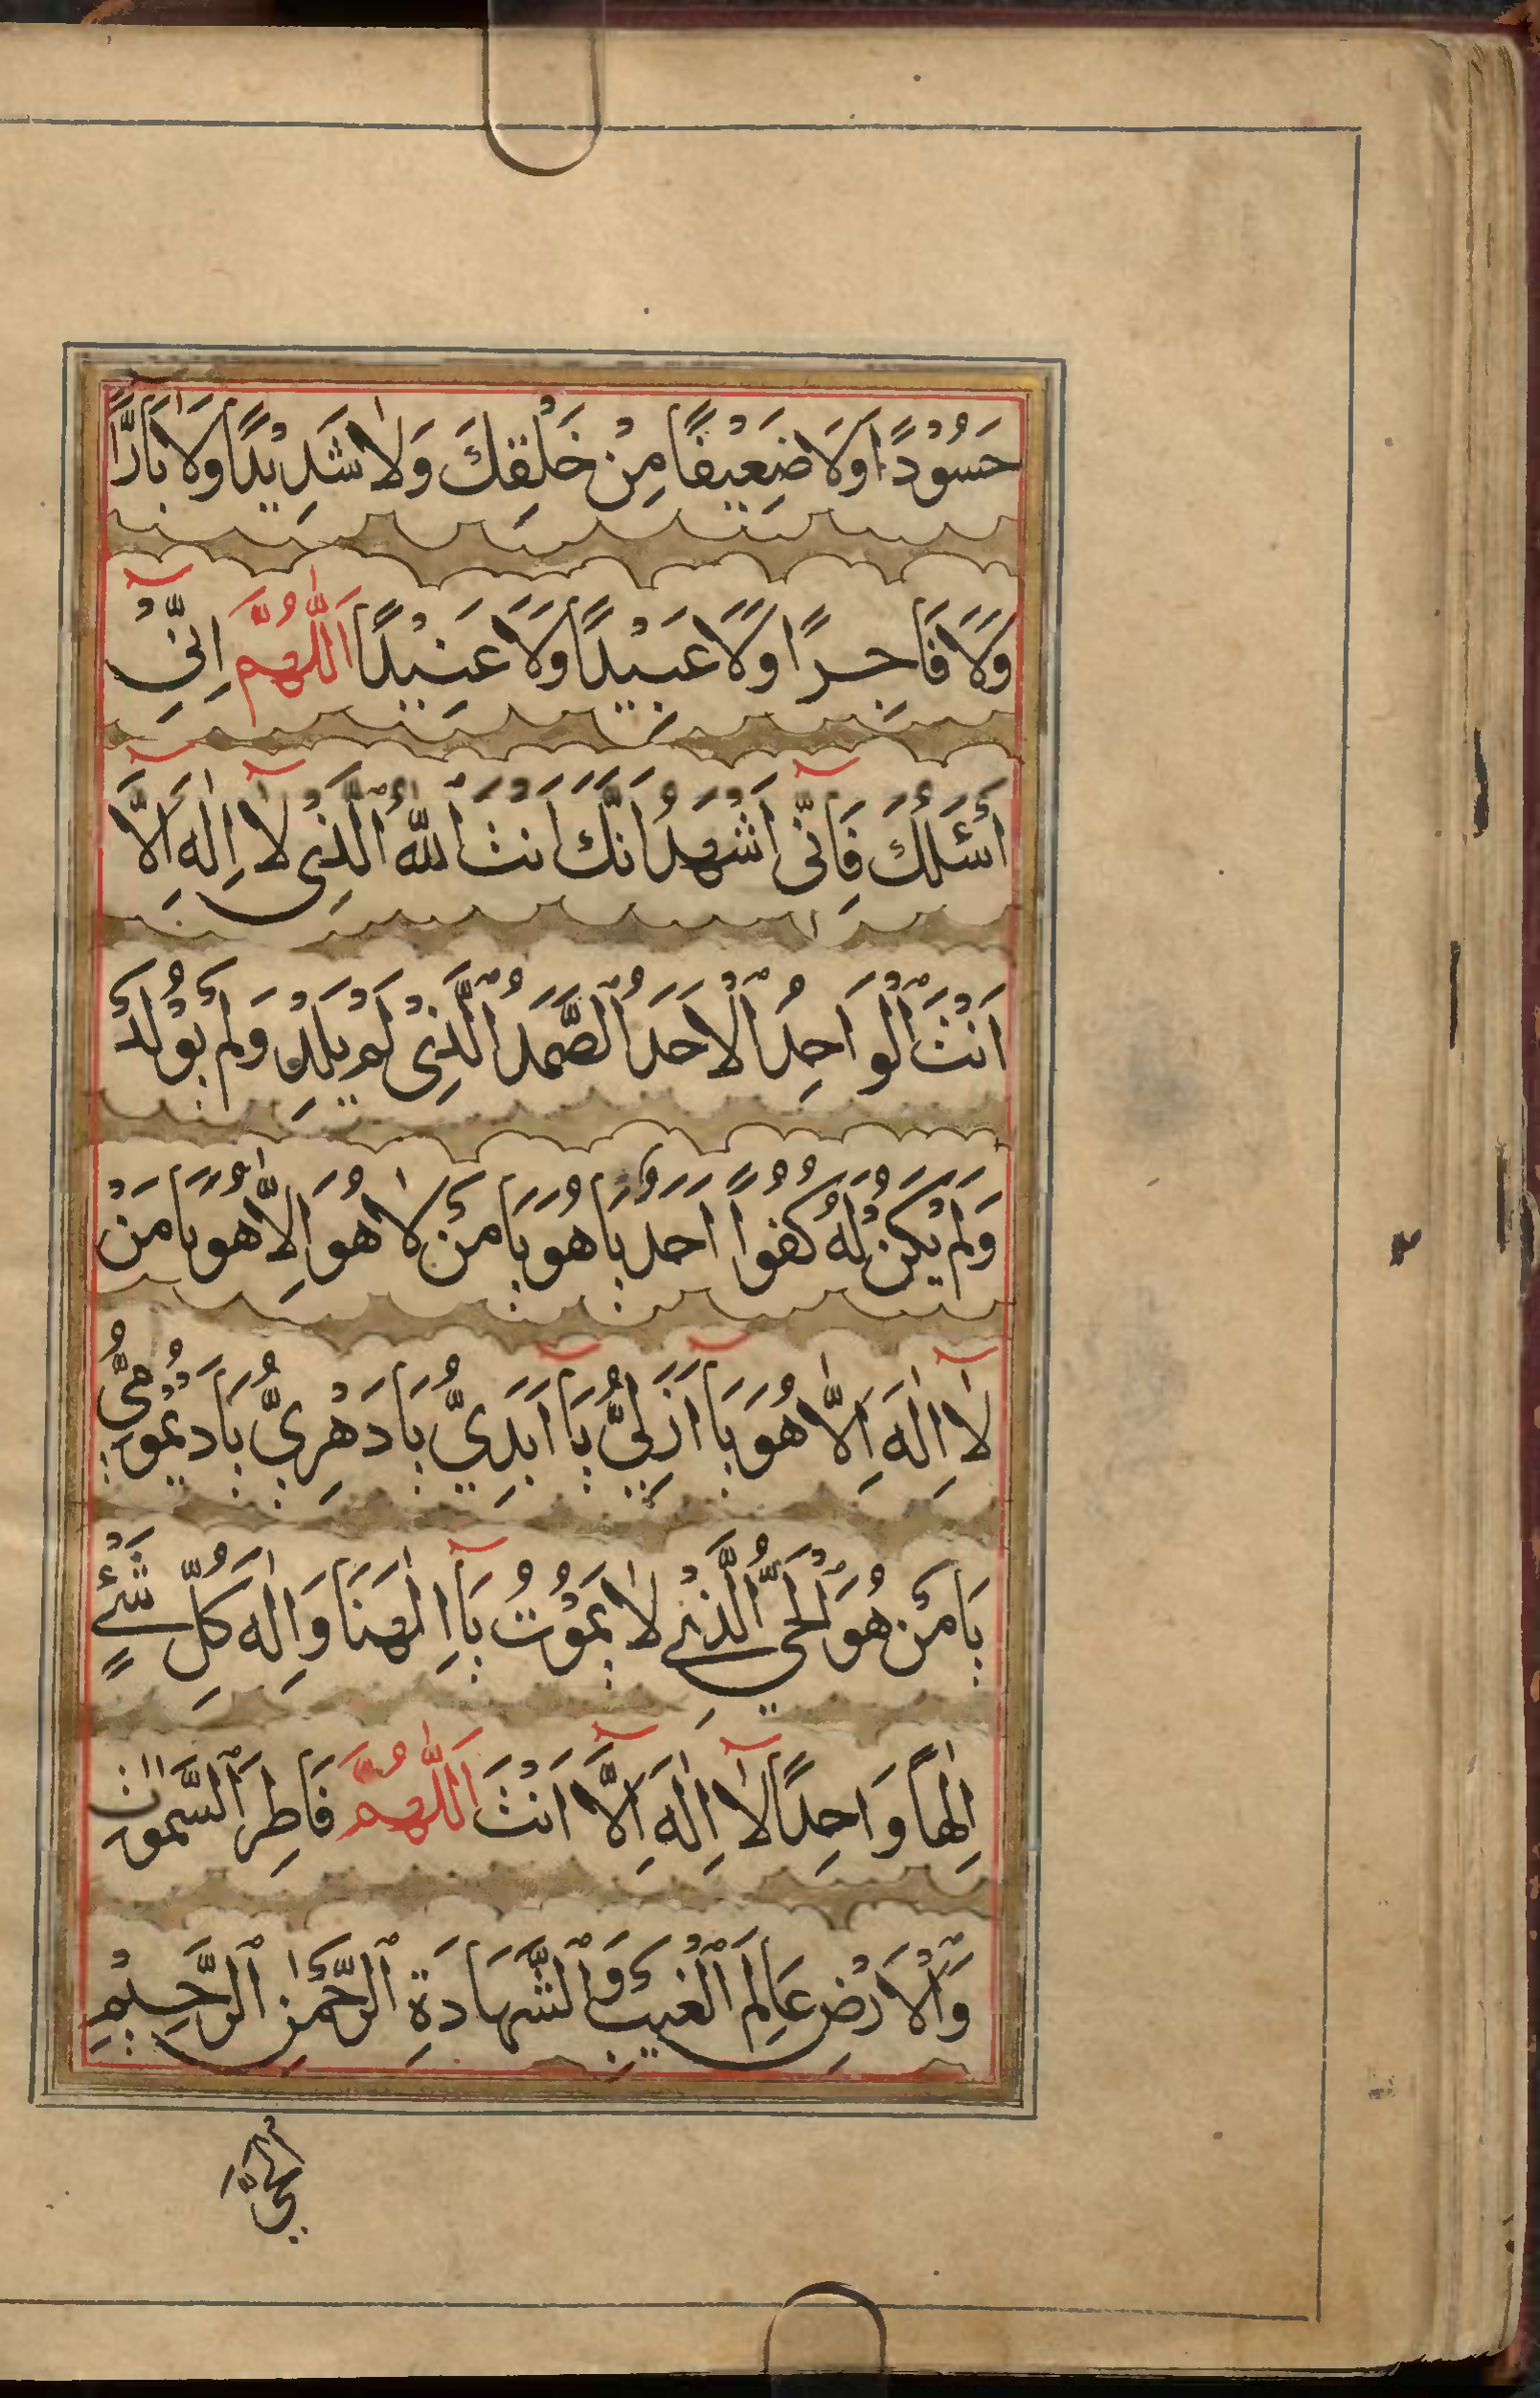 حَسُوْدًا وَلَا ضَعِيْفًا مِنْ خَلْقِكَ وَلٰا شَدِيْدًا وَلَا بَارًّا
وَلَا فَاجِرًا وَلَا عَبِيْدًا وَلَا عَنِيْدًا اَللّٰهُمَّ اِنِّيْٓ
اَسْئَلُكَ فَاِنِّىٓ اَشْهَدُ اَنَّكَ اَنْتَ ٱللّٰهُ ٱلَّذِيْ لٰٓا اِلٰهَ اِلَّآ
اَنْتَ ٱلْوَاحِدُ ٱلْاَحَدُ ٱلصَّمَدُ ٱلَّذِيْ لَمْ يَلِدْ وَلَمْ يُوْلَدْ
وَلَمْ يَكُنْ لَهُ كُفُواً اَحَدٌ يَا هُوَ يَا مَنْ لٰا هُوَ اِلّٰا هُوَ يَا مَنْ
لٰٓا اِلٰهَ اِلّٰا هُوَ يَآ اَزَلِيُّ يَآ اَبَدِيُّ يَا دَهْرِيُّ يَا دَيْمُوْمِيُّ
يَا مَنْ هُوَ ٱلْحَيُّ ٱلَّذِيْ لٰا يَمُوْتُ يَآ اِلٰهَنَا وَاِلٰهَ كُلِّ شَيْءٍ
اِلٰهاً وَاحِدًا لٰٓا اِلٰهَ اِلَّآ اَنْتَ اَللّٰهُمَّ فَاطِرَ ٱلسَّمٰوٰاتِ
وَٱلْاَرْضِ عَالِمَ ٱلْغَيْبِ وَٱلشَّهَادَةِ ٱلرَّحْمٰنِ ٱلرَّحِيْمِ
اَلْحَيَّ